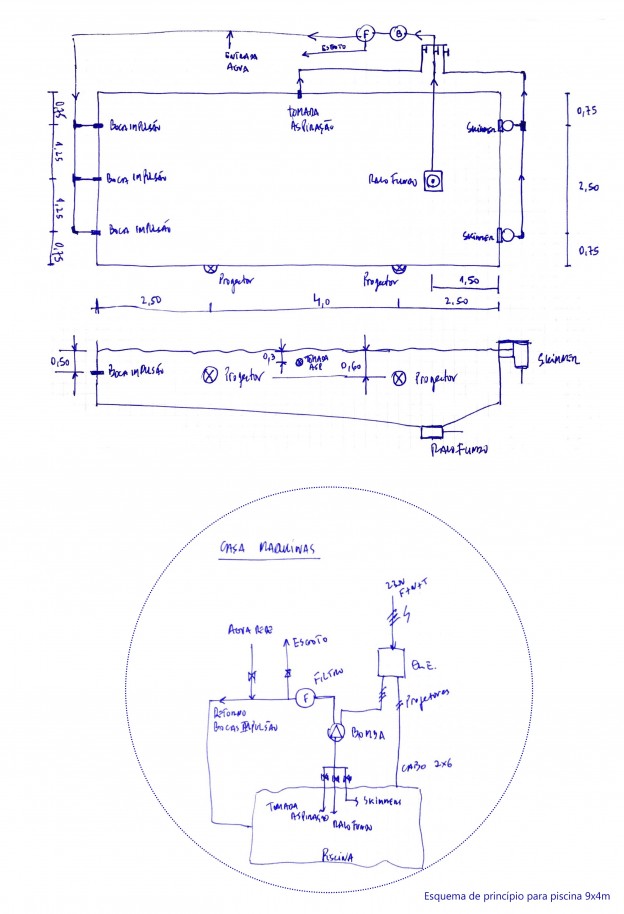 F
B
ESGOTO
ENTRADA
AGUA
TOMADA
ASPIRAÇÃO
0,75
BOCA IMPULSÃO
SKIMMER
0,75
1,25
BOCA IMPULSÃO
RALO FUNDO
2,50
1,25
BOCA IMPULSÃO
SKIMMER
0,75
0,75
Projector
Projector
1,50
2,50
4,0
2,50
0,50
BOCA IMPULSÃO
Projector
0,3
TOMADA
ASP
0,60
Projector
SKIMMER
RALO FUNDO
CASA MAQUINAS
220V
F+N+T
AGUA REDE
ESGOTO
FILTRO
F
Q.E.
Projetores
RETORNO
BOCAS IMPULSÃO
BOMBA
CABO 2x6
SKIMMERS
TOMADA
ASPIRAÇÃO
RALO FUNDO
PISCINA
Esquema de princípio para piscina 9x4m